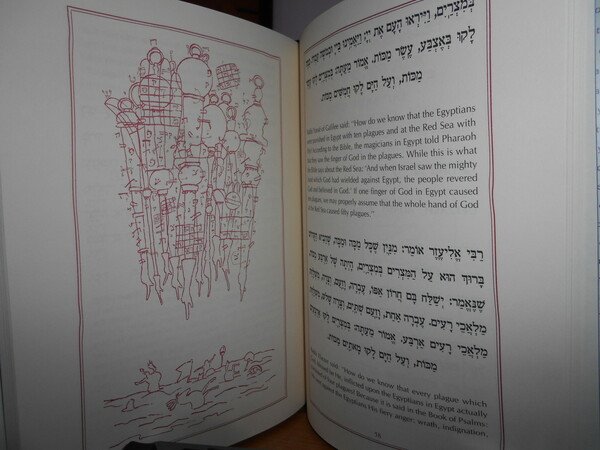 בְּמִצְרָיִם, וַיִּירְאוּ הָעָם אֶת יְיָ, וַיַּאֲמִינוּ בַּיְיָ וּבְמֹשֶׁה
לָקוּ בְּאֶצְבַּע, עֶשֶׂר מַכּוֹת. אֱמוֹר מֵעַתָּה: בְּמִצְרַיִם לָקוּ
מַכּוֹת, וְעַל הַיָּם לָקוּ חֲמִשִּׁים מַכּוֹת.
of Galilee said: "How do we know that the Egyptians
punished in Egypt with ten plagues and at the Red Sea with
According to the Bible, the magicians in Egypt told Pharaoh
they saw the finger of God in the plagues. While this is what
Bible says about the Red Sea: "And when Israel saw the mighty
which God had wielded against Egypt, the people revered
and believed in God." If one finger of God in Egypt caused
plagues, we may properly assume that the whole hand of God
at the Red Sea caused fifty plagues."
רַבִּי אֱלִיעֶזֶר אוֹמֵר: מִנַּיִן שֶׁכָּל מַכָּה וּמַכָּה, שֶׁהֵבִיא הַקָּדוֹשׁ
בָּרוּךְ הוּא עַל הַמִּצְרִים בְּמִצְרַיִם, הָיְתָה שֶׁל אַרְבַּע מַכּוֹת,
שֶׁנֶּאֱמַר: יְשַׁלַּח בָּם חֲרוֹן אַפּוֹ, עֶבְרָה, וָזַעַם, וְצָרָה, מִשְׁלַחַת
מַלְאֲכֵי רָעִים. עֶבְרָה אַחַת, וָזַעַם שְׁתַּיִם, וְצָרָה שָׁלֹשׁ, מִשְׁלַחַת
מַלְאֲכֵי רָעִים אַרְבַּע. אֱמוֹר מֵעַתָּה: בְּמִצְרַיִם לָקוּ אַרְבָּעִים
מַכּוֹת, וְעַל הַיָּם לָקוּ מָאתַיִם מַכּוֹת.
said: "How do we know that every plague which
inflicted upon the Egyptians in Egypt actually
four plagues? Because it is said in the Book of Psalms:
against the Egyptians His fiery anger: wrath, indignation,
58